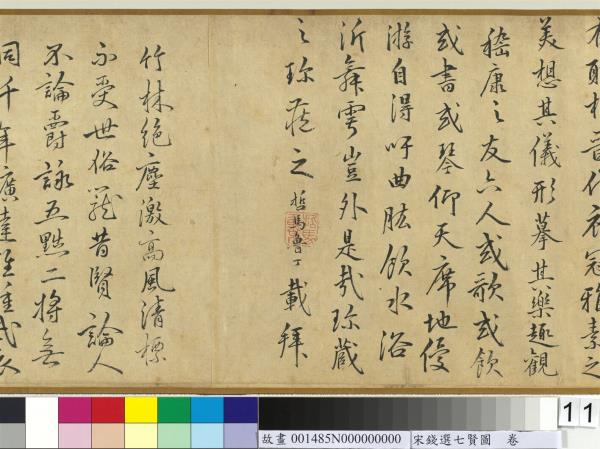 衣冠雅素之
美想其儀形摹其藥趣觀
嵇康之友六人或歌或飲
或書或琴仰天席地優
游自得吁曲肱飲水浴
沂舞雩豈外是哉珍藏
之珍藏之哲馬魯丁載拜
竹林絕塵激高風清標
不受世俗籠昔賢論人
不論爵詠五黜二將無
同千年廣達
故畫 001485N000000000
宋錢選七賢圖 卷
11